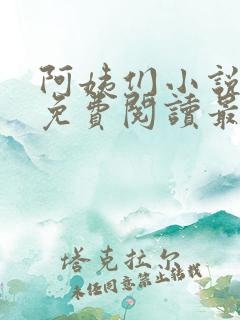 阿姨们小説
免費閱讀最
塔克拉尔
未经同意禁止转载